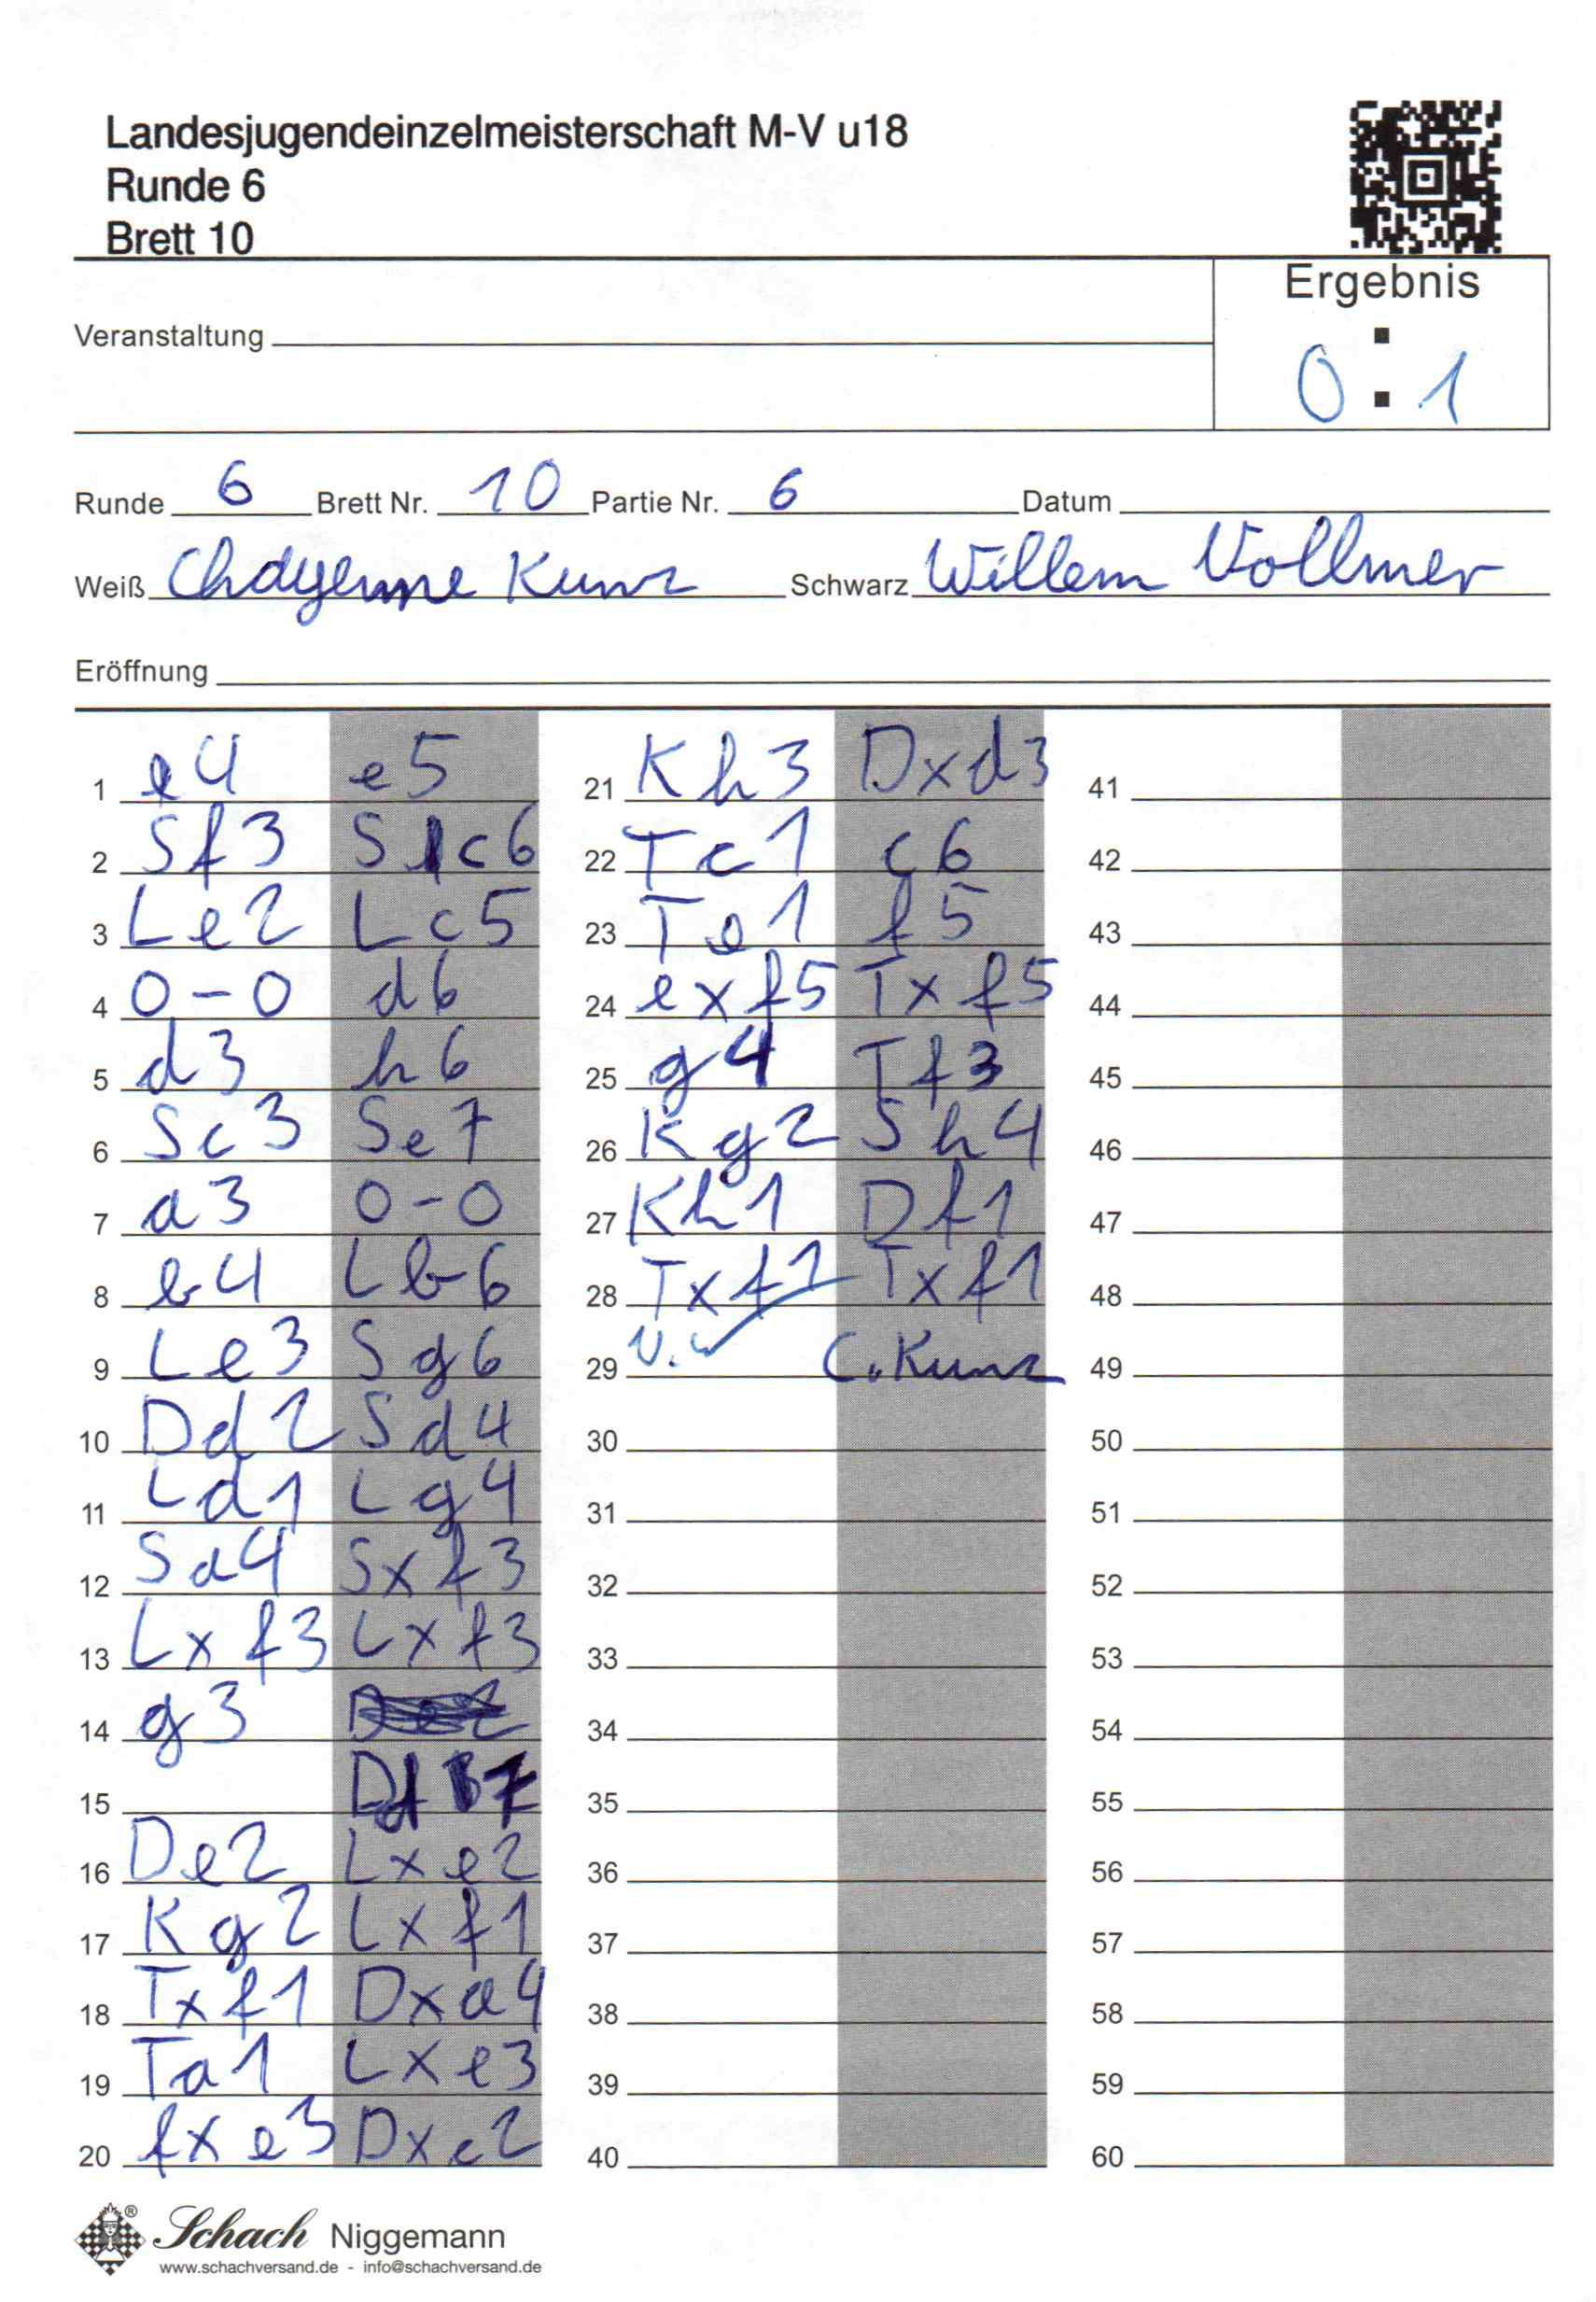 Landesjugendeinzelmeisterschaft M-V u18
Runde 6
Brett 10
Ergebnis
Veranstaltung
0 : 1
Runde 6 Brett Nr. 10 Partie Nr. 6 Datum
Weiß Chayenne Kunz Schwarz Willem Vollmer
Eröffnung
1 e4 e5
2 Sf3 Sc6
3 Le2 Lc5
4 0-0 d6
5 d3 h6
6 Sc3 Se7
7 a3 0-0
8 b4 Lb6
9 Le3 Sg6
10 Dd2 Sd4
11 Ld1 Lg4
12 Sa4 Sxf3
13 Lxf3 Lxf3
14 g3
15 Dd7
16 De2 Lxe2
17 Kg2 Lxf1
18 Txf1 Dxa4
19 Ta1 Lxe3
20 fxe3 Dxc2
21 Kh3 Dxd3
22 Tc1 c6
23 Te1 f5
24 exf5 Txf5
25 g4 Tf3
26 Kg2 Sh4
27 Kh1 Df1
28 Txf1 Txf1
29 C. Kunz
30
31
32
33
34
35
36
37
38
39
40
41
42
43
44
45
46
47
48
49
50
51
52
53
54
55
56
57
58
59
60
Schach Niggemann
www.schachversand.de - info@schachversand.de